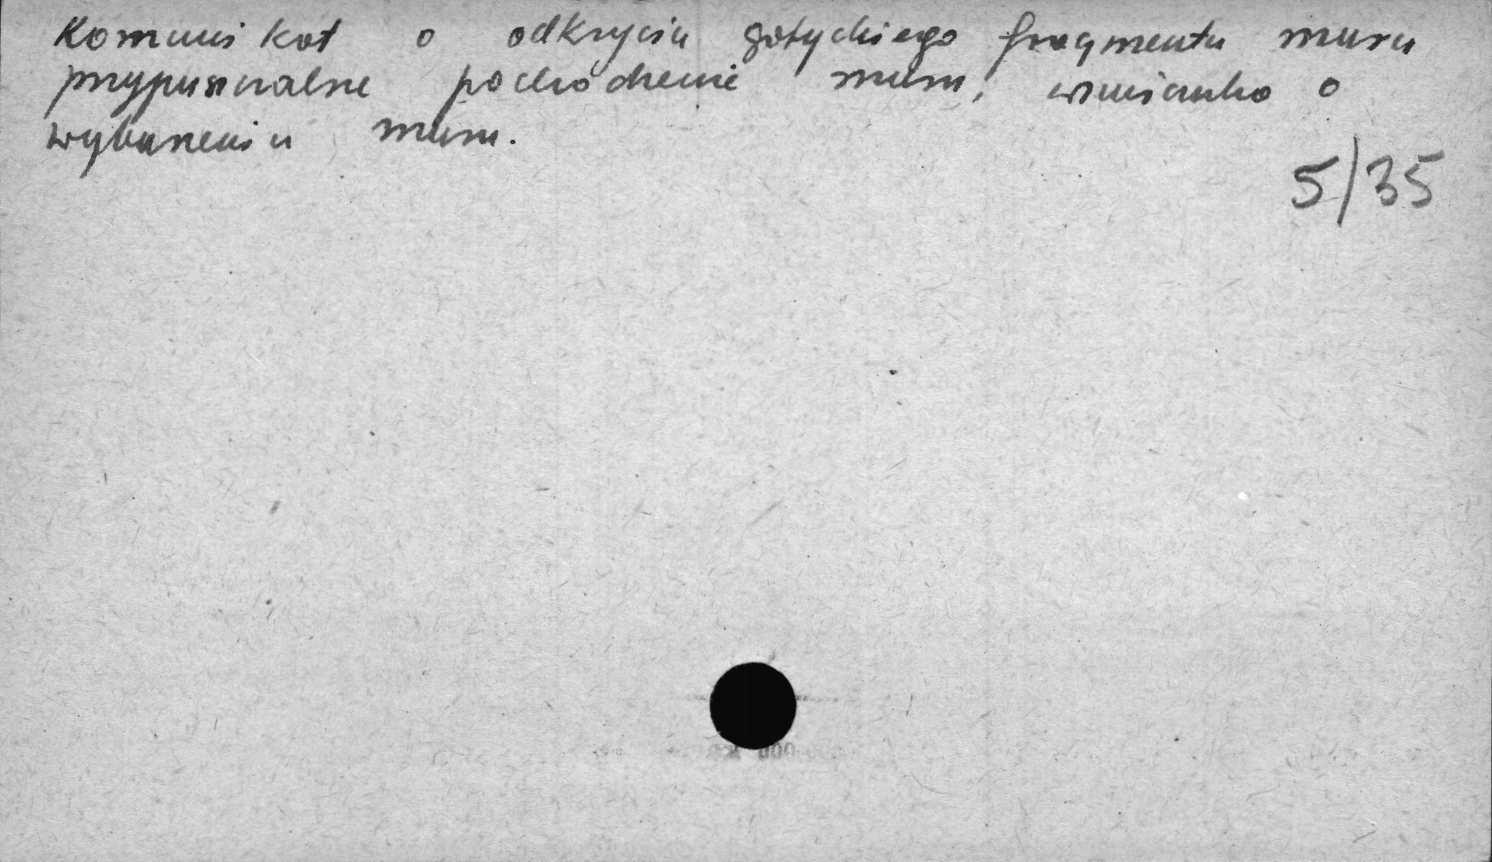 Komunikat o odkryciu gotyckiego fragmentu muru
przypuszczalne pochodzenie muru, wzmianka o
wyburzeniu muru.
5/35